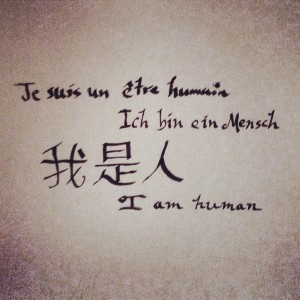 Je suis un être humain
Ich bin ein Mensch
我是人
I am human